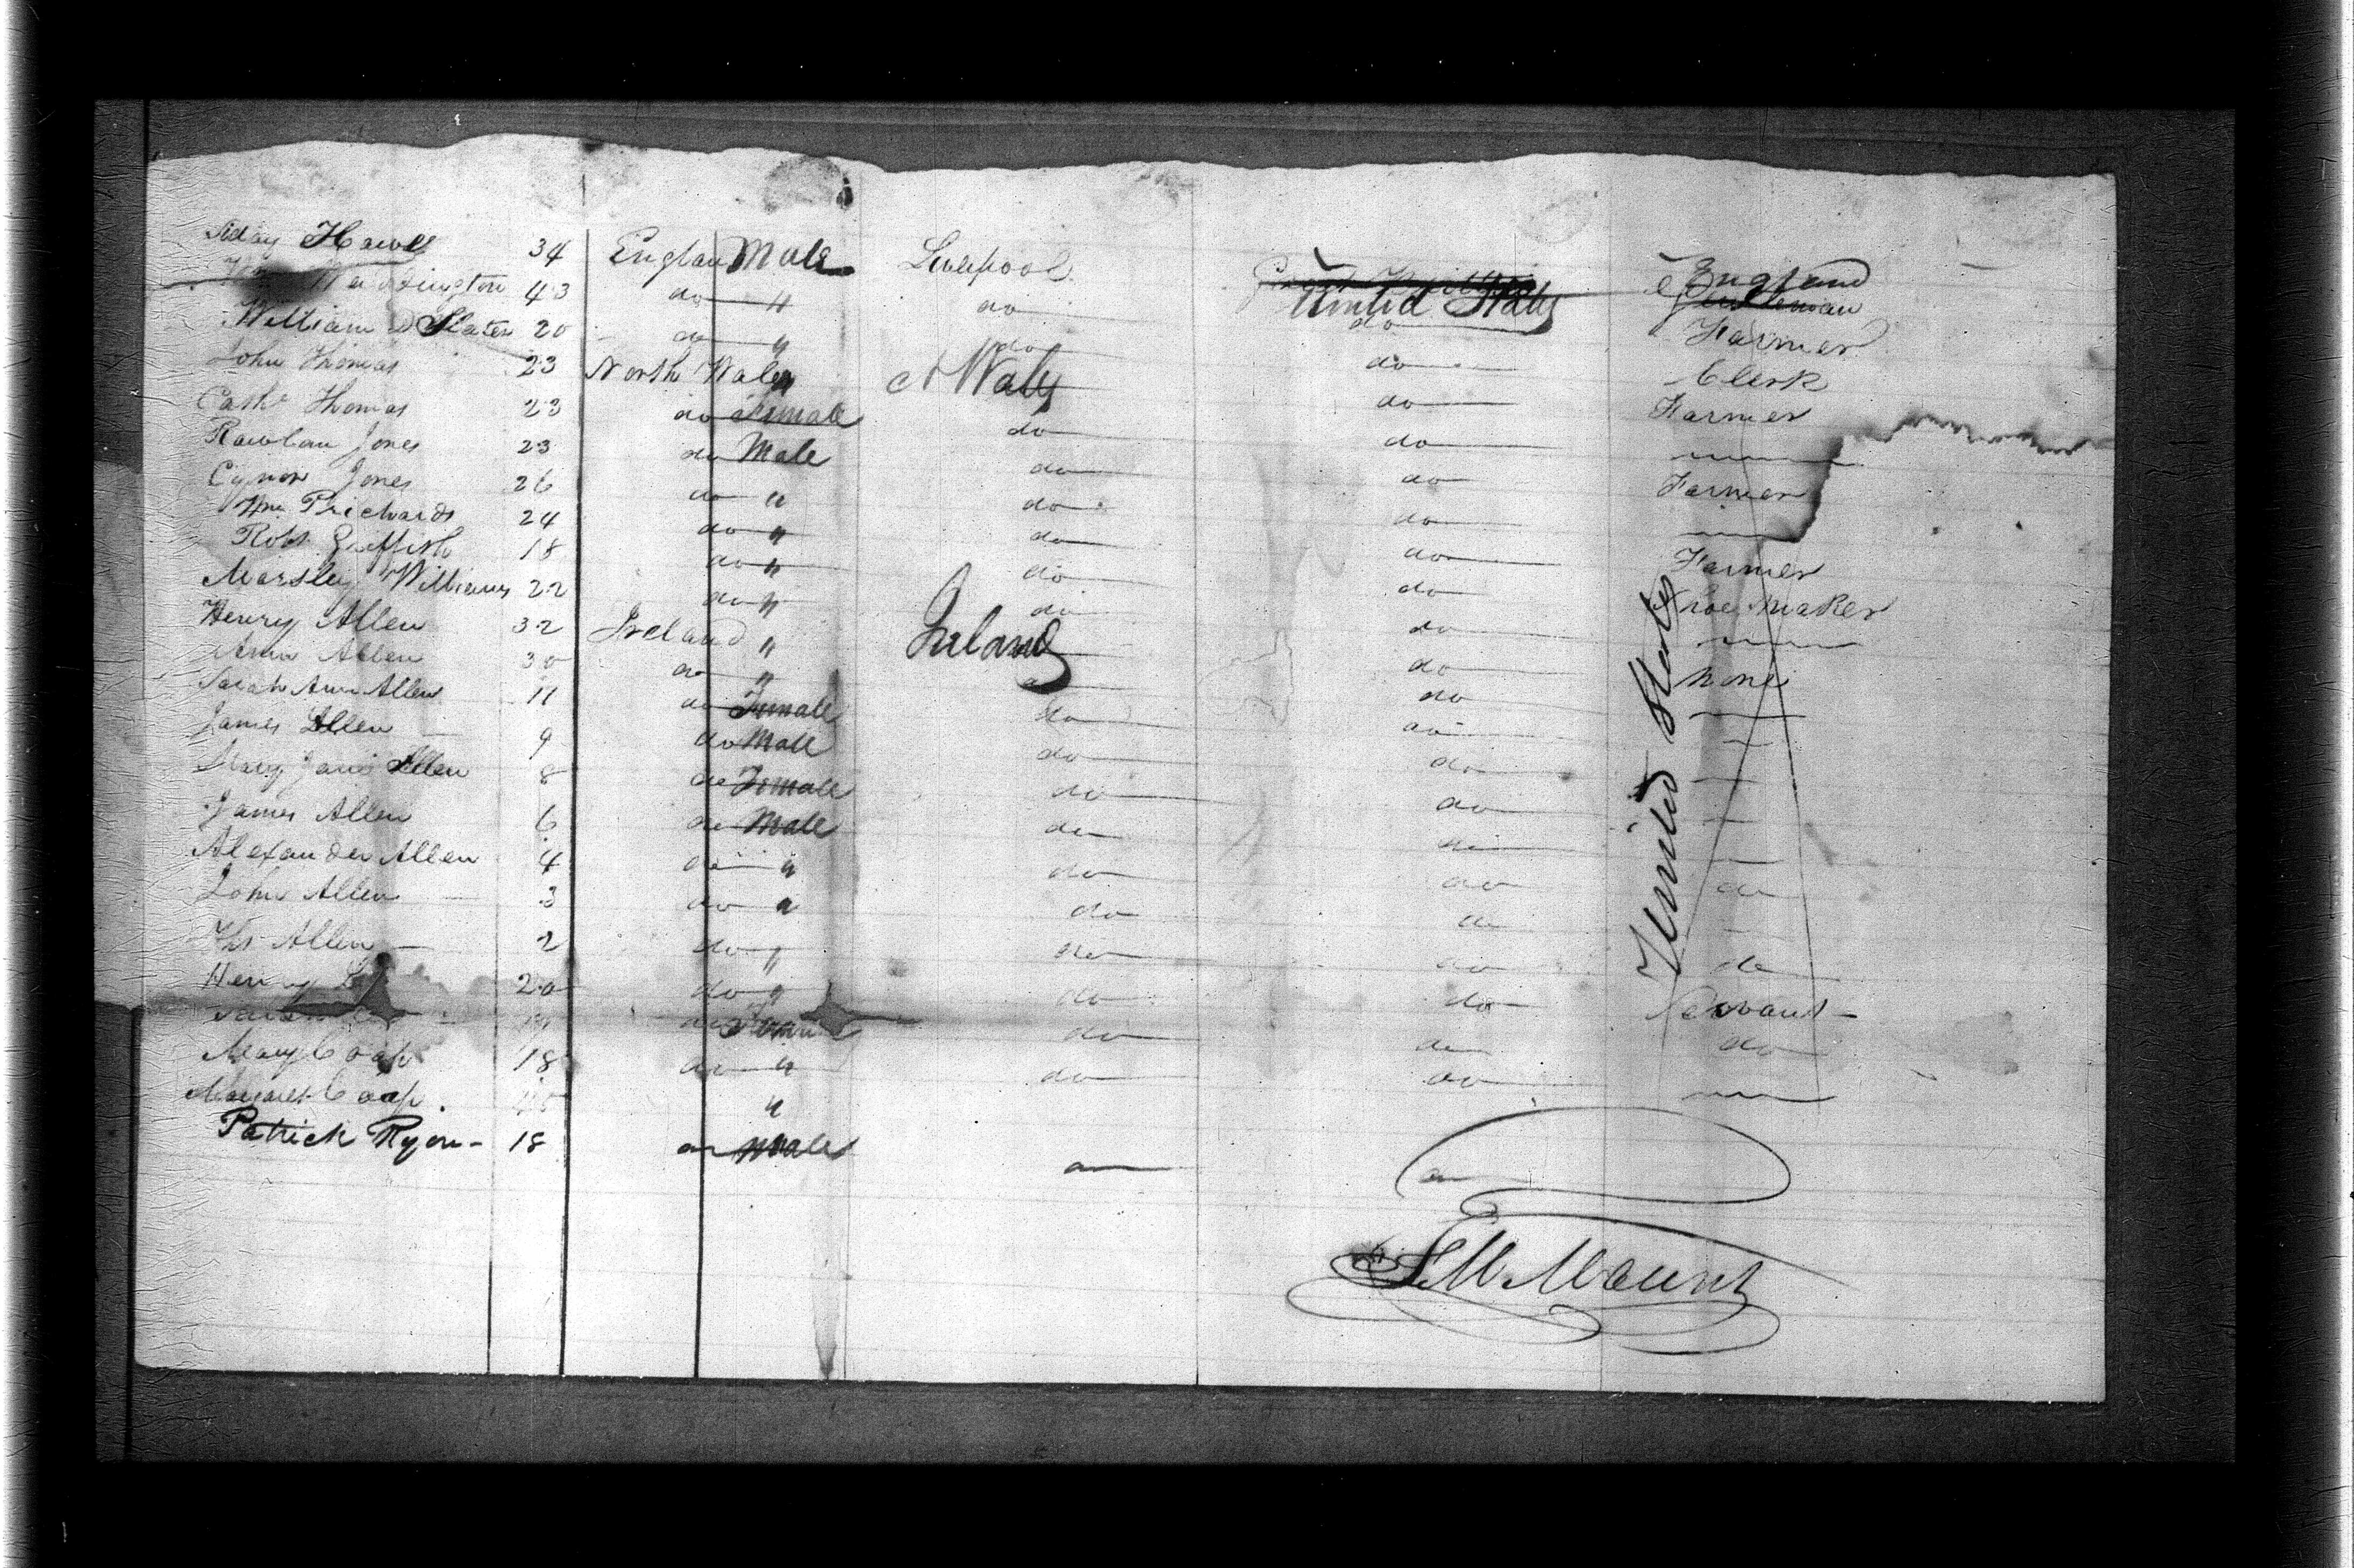 Howell 34 Englan Male Liverpool United States England
43 do " do Gentleman
William Slater 20 do " do do Farmer
John Thomas 23 North Wales " N Wales do Clerk
Cathe Thomas 23 do Female do do Farmer
Rowlan Jones 23 do Male do do
Cynon Jones 26 do " do do Farmer
Wm Prichards 24 do " do do
Robt Griffith 18 do " do do Farmer
Marsley Williams 22 do " do do Shoe Maker
Henry Allen 32 Ireland " Ireland do
Ann Allen 30 do " do do None
Sarah Ann Allen 11 do Female do do
James Allen 9 do Male do do
Mary Jane Allen 8 do Female do do
James Allen 6 do Male do do
Alexander Allen 4 do " do do
John Allen 3 do " do do do
Ths Allen 2 do " do do do
Henry 20 do " do do Servant
do do do do
Mary Coap 18 do " do do
Margaret Coap "
Patrick Ryon - 18 do Male do do
United States
Mount